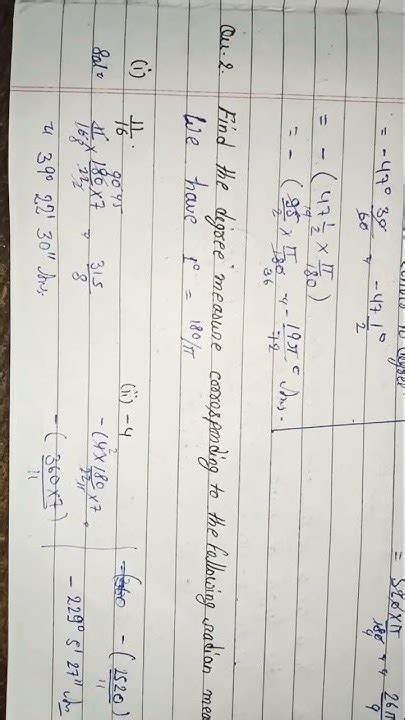 = -47° 30/60 = -47 1/2°
= - (47 1/2 × π/180)
= - (95/2 × π/180 36 = - 19π/72 c Ans.
= 520×π/180 = 26π/9
Qu.2. Find the degree measure corresponding to the following radian mea
We have 1c = 180/π
(i) 11/16.
Sol=
11/16 × 180 × 7/22 = 315/8
= 39° 22' 30" Ans.
(ii) -4
-(4×180×7/22 11
-(360×7/11)
-(2520/11)
- 229° 5' 27" Ans